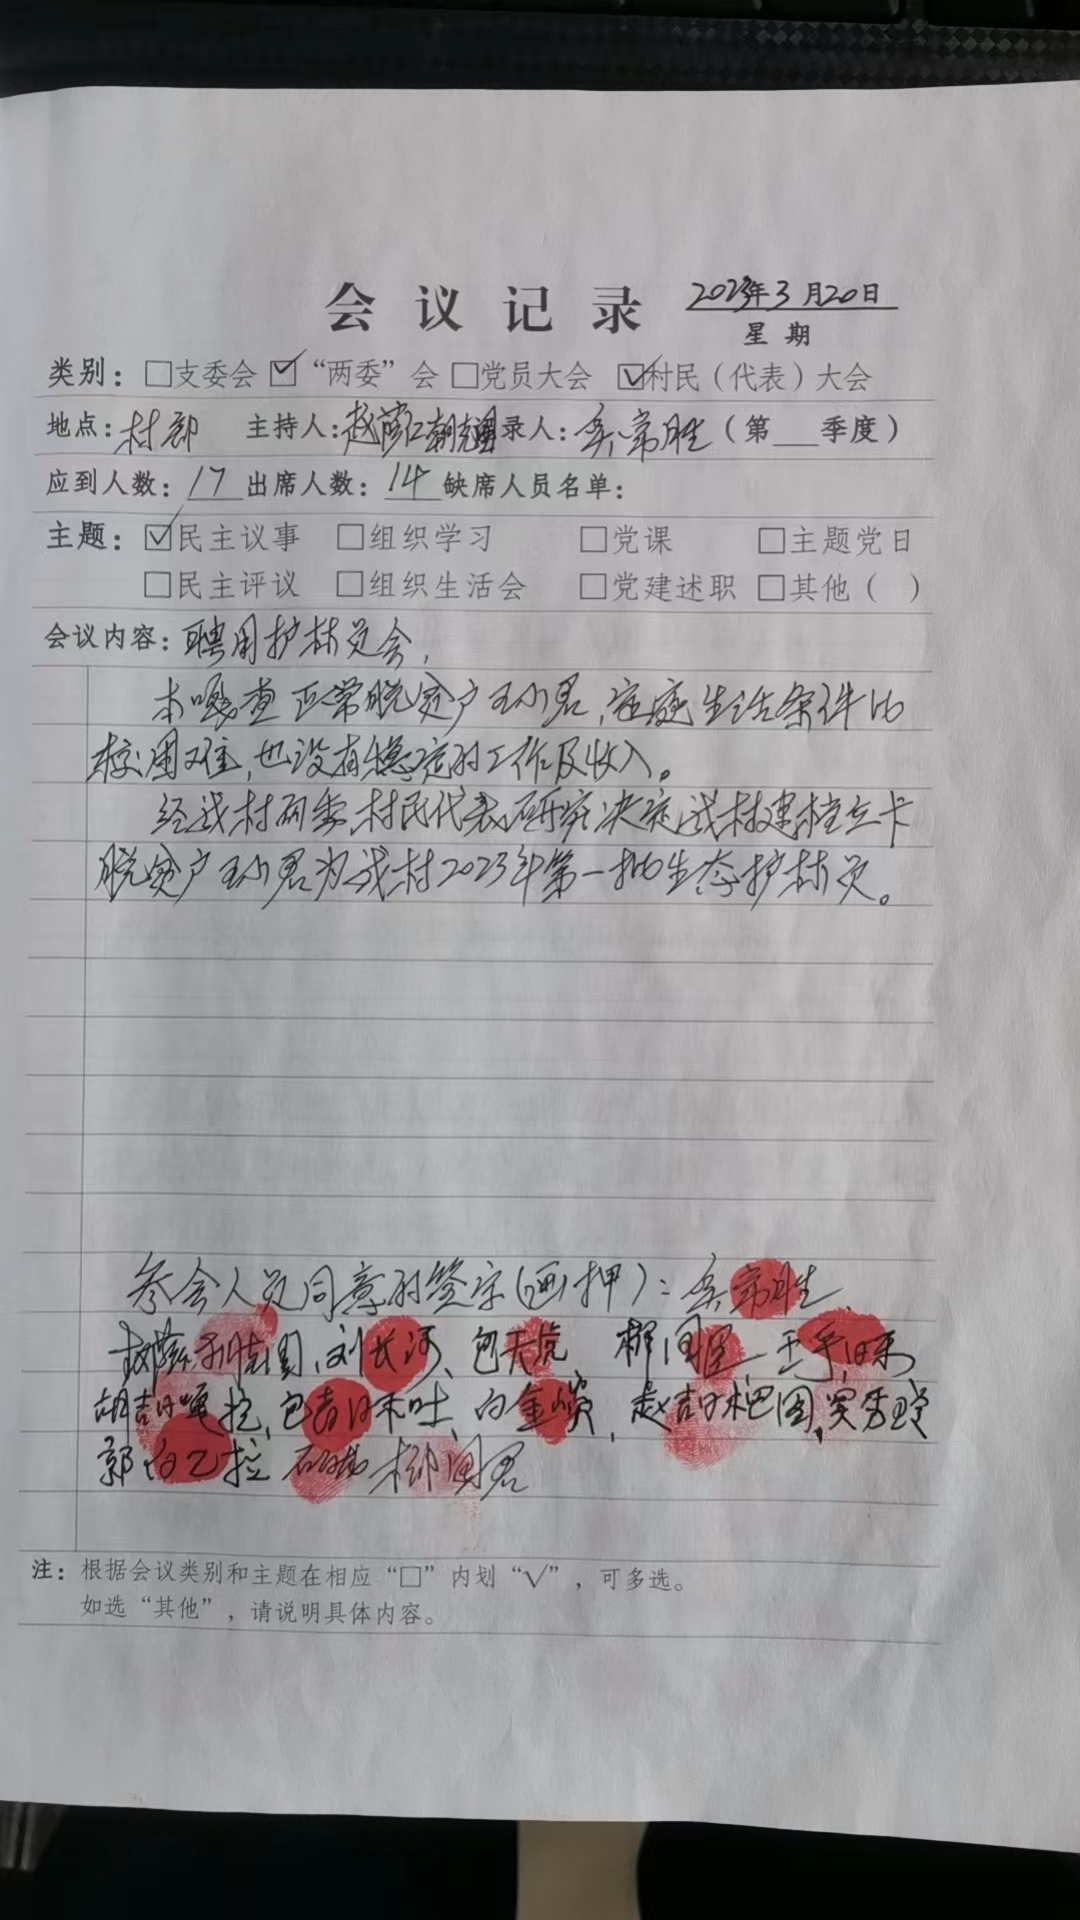 会议记录 2023年3月20日
星期
类别：□支委会 ☑“两委”会 □党员大会 ☑村民（代表）大会
地点：村部 主持人： 录人：吴常胜（第 季度）
应到人数：17 出席人数：14 缺席人员名单：
主题：☑民主议事 □组织学习 □党课 □主题党日
□民主评议 □组织生活会 □党建述职 □其他（ ）
会议内容：聘用护林员会，
本嘎查正常脱贫户王小君，家庭生活条件比
较困难，也没有稳定的工作及收入。
经我村两委、村民代表研究决定我村建档立卡
脱贫户王小君为我村2023年第一批生态护林员。
参会人员同意的签字（画押）：吴常胜、
刘长河、包天虎
胡吉日嘎拉，包吉日木吐、白金 ，赵吉日木巴图，
郭白乙拉
注：根据会议类别和主题在相应“□”内划“√”，可多选。
如选“其他”，请说明具体内容。